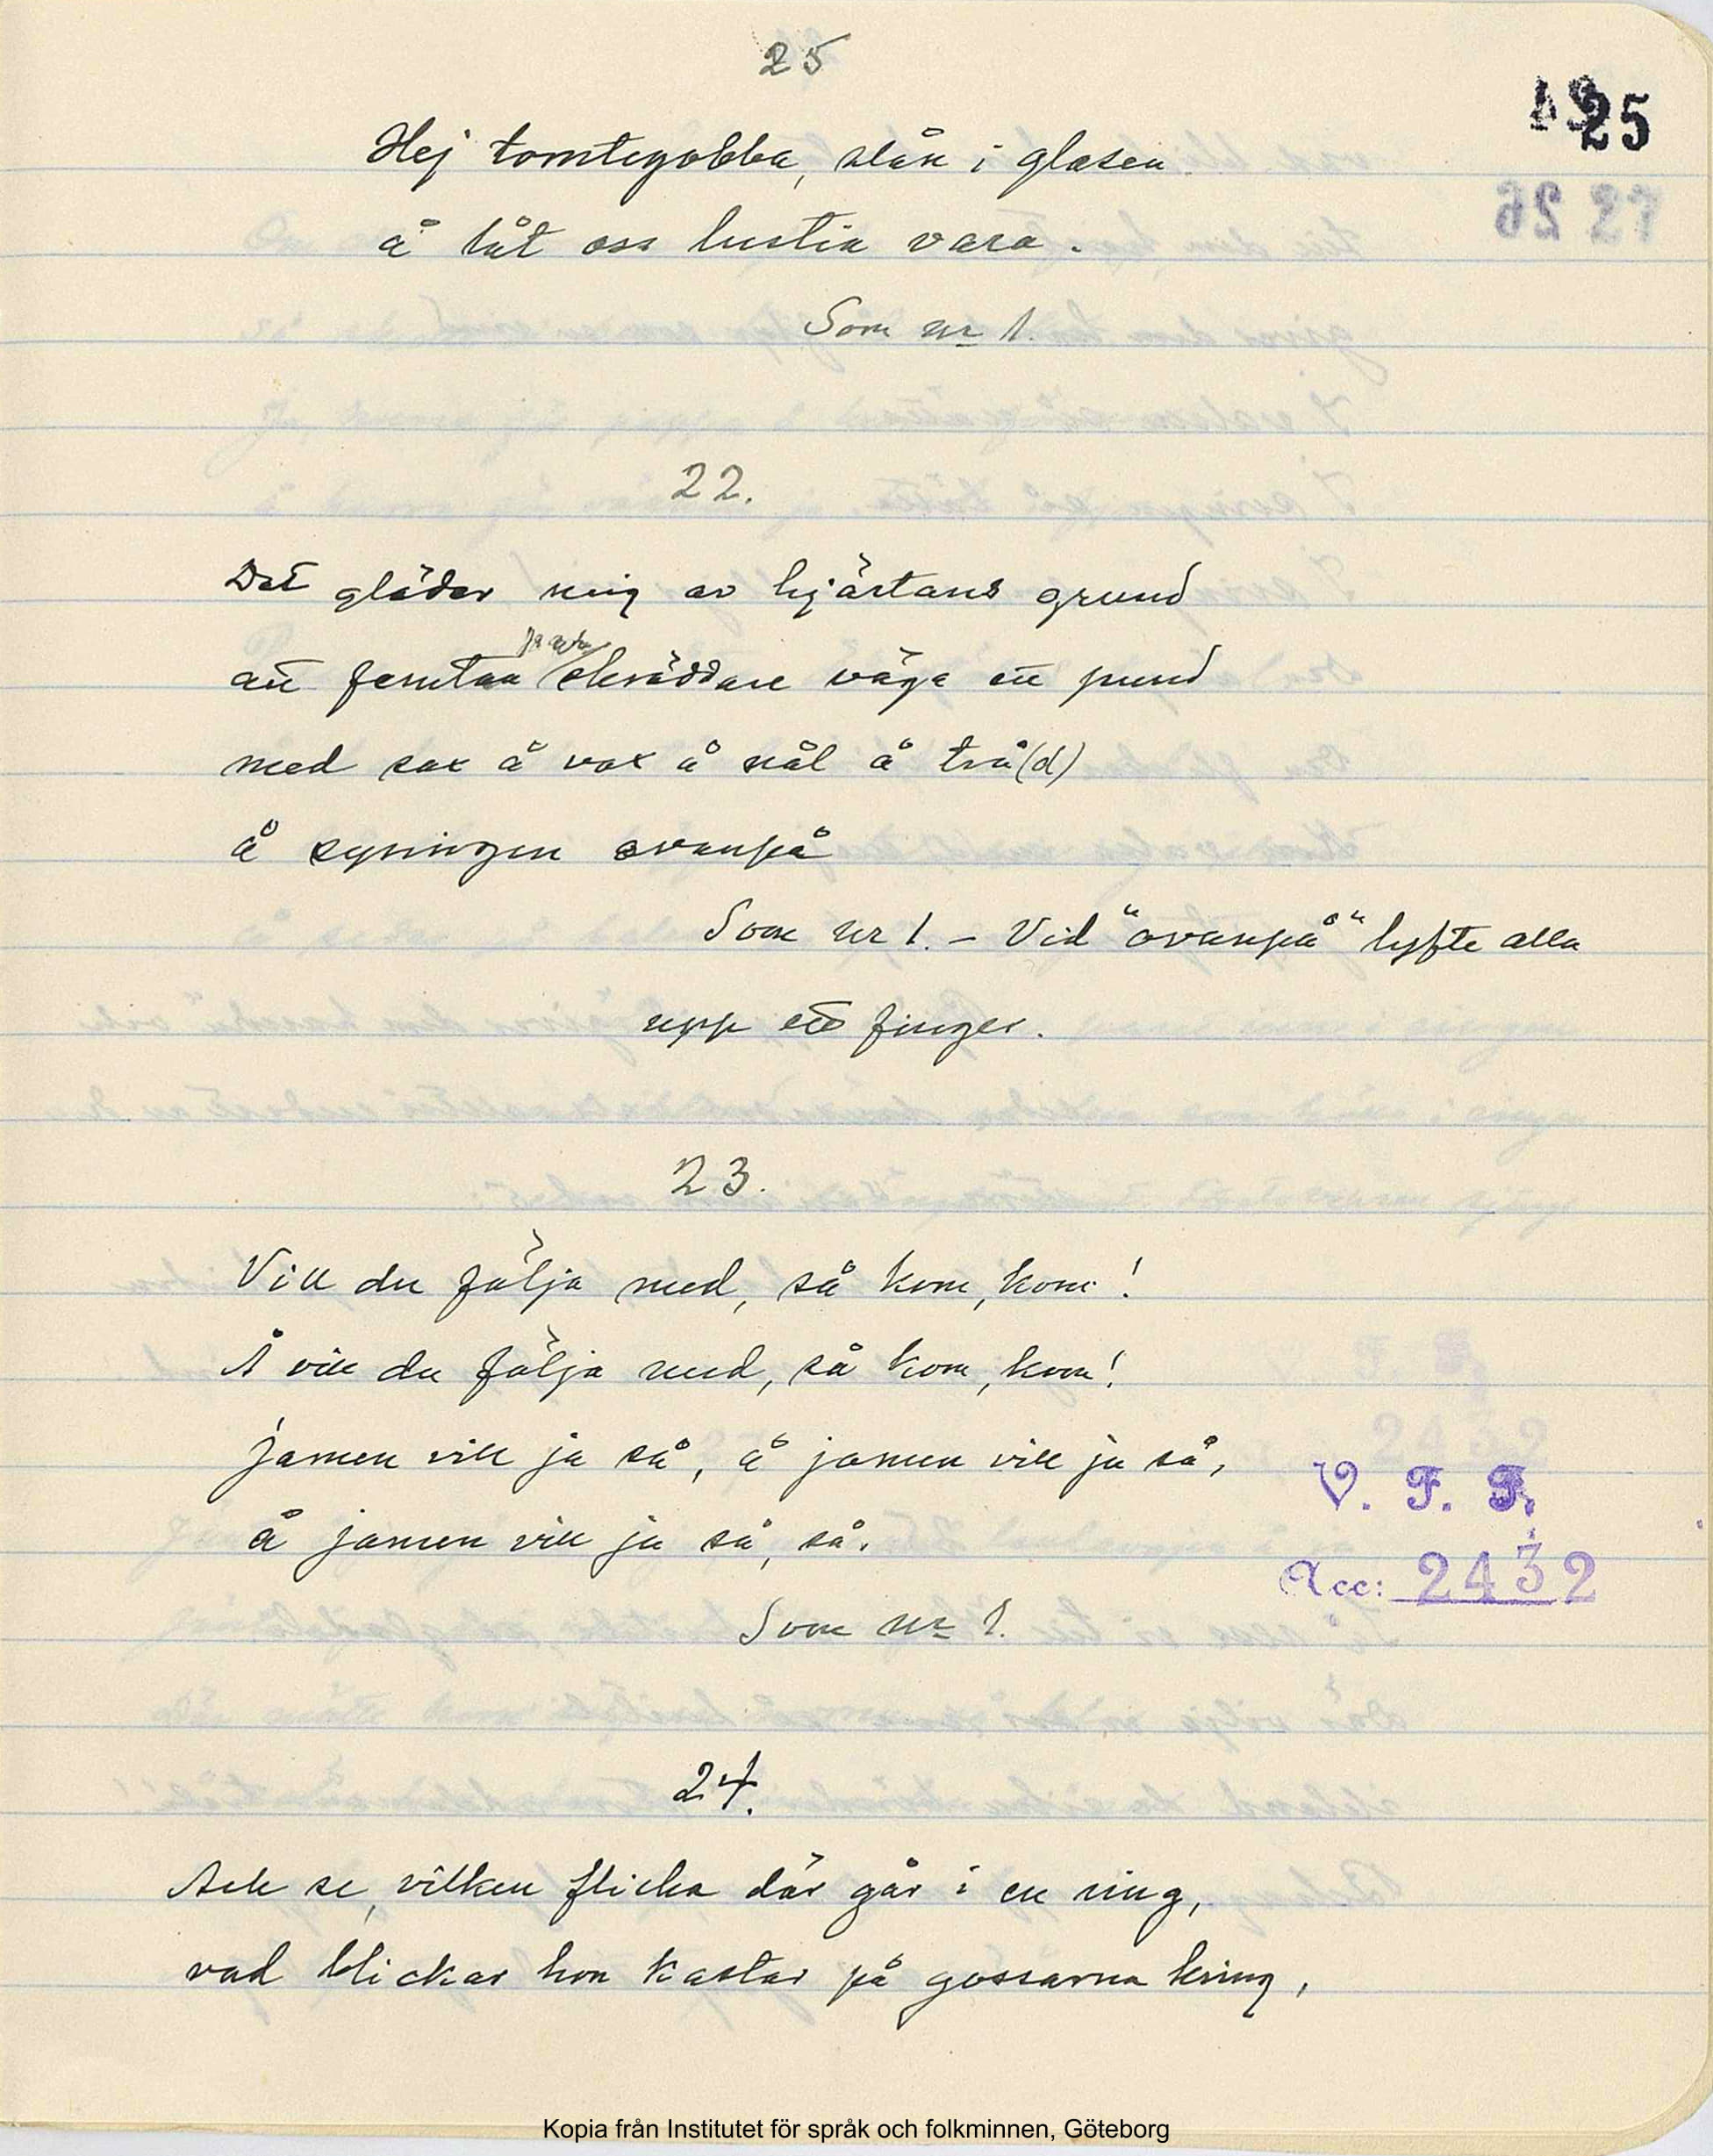 25
25
Hej tomtegobba, slån i glasen
å låt oss lustia vara.
Som nr 1.
22.
Det gläder mig av hjärtans grund
att femtan skräddare väga ett pund
med sax å vax å nål å trå(d)
å syringen ovanpå
Som nr 1. – Vid "ovanpå" lyfte alla
upp ett finger.
23.
Vill du följa med, så kom, kom!
Å vill du följa med, så kom, kom!
Jamen vill ja så, å jamen vill ja så,
å jamen vill ja så, så.
V. F. F.
Acc: 2432
Som nr 1.
24.
Ack se, vilken flicka där går i en ring,
vad blickar hon kastar på gossarna kring,
Kopia från Institutet för språk och folkminnen, Göteborg